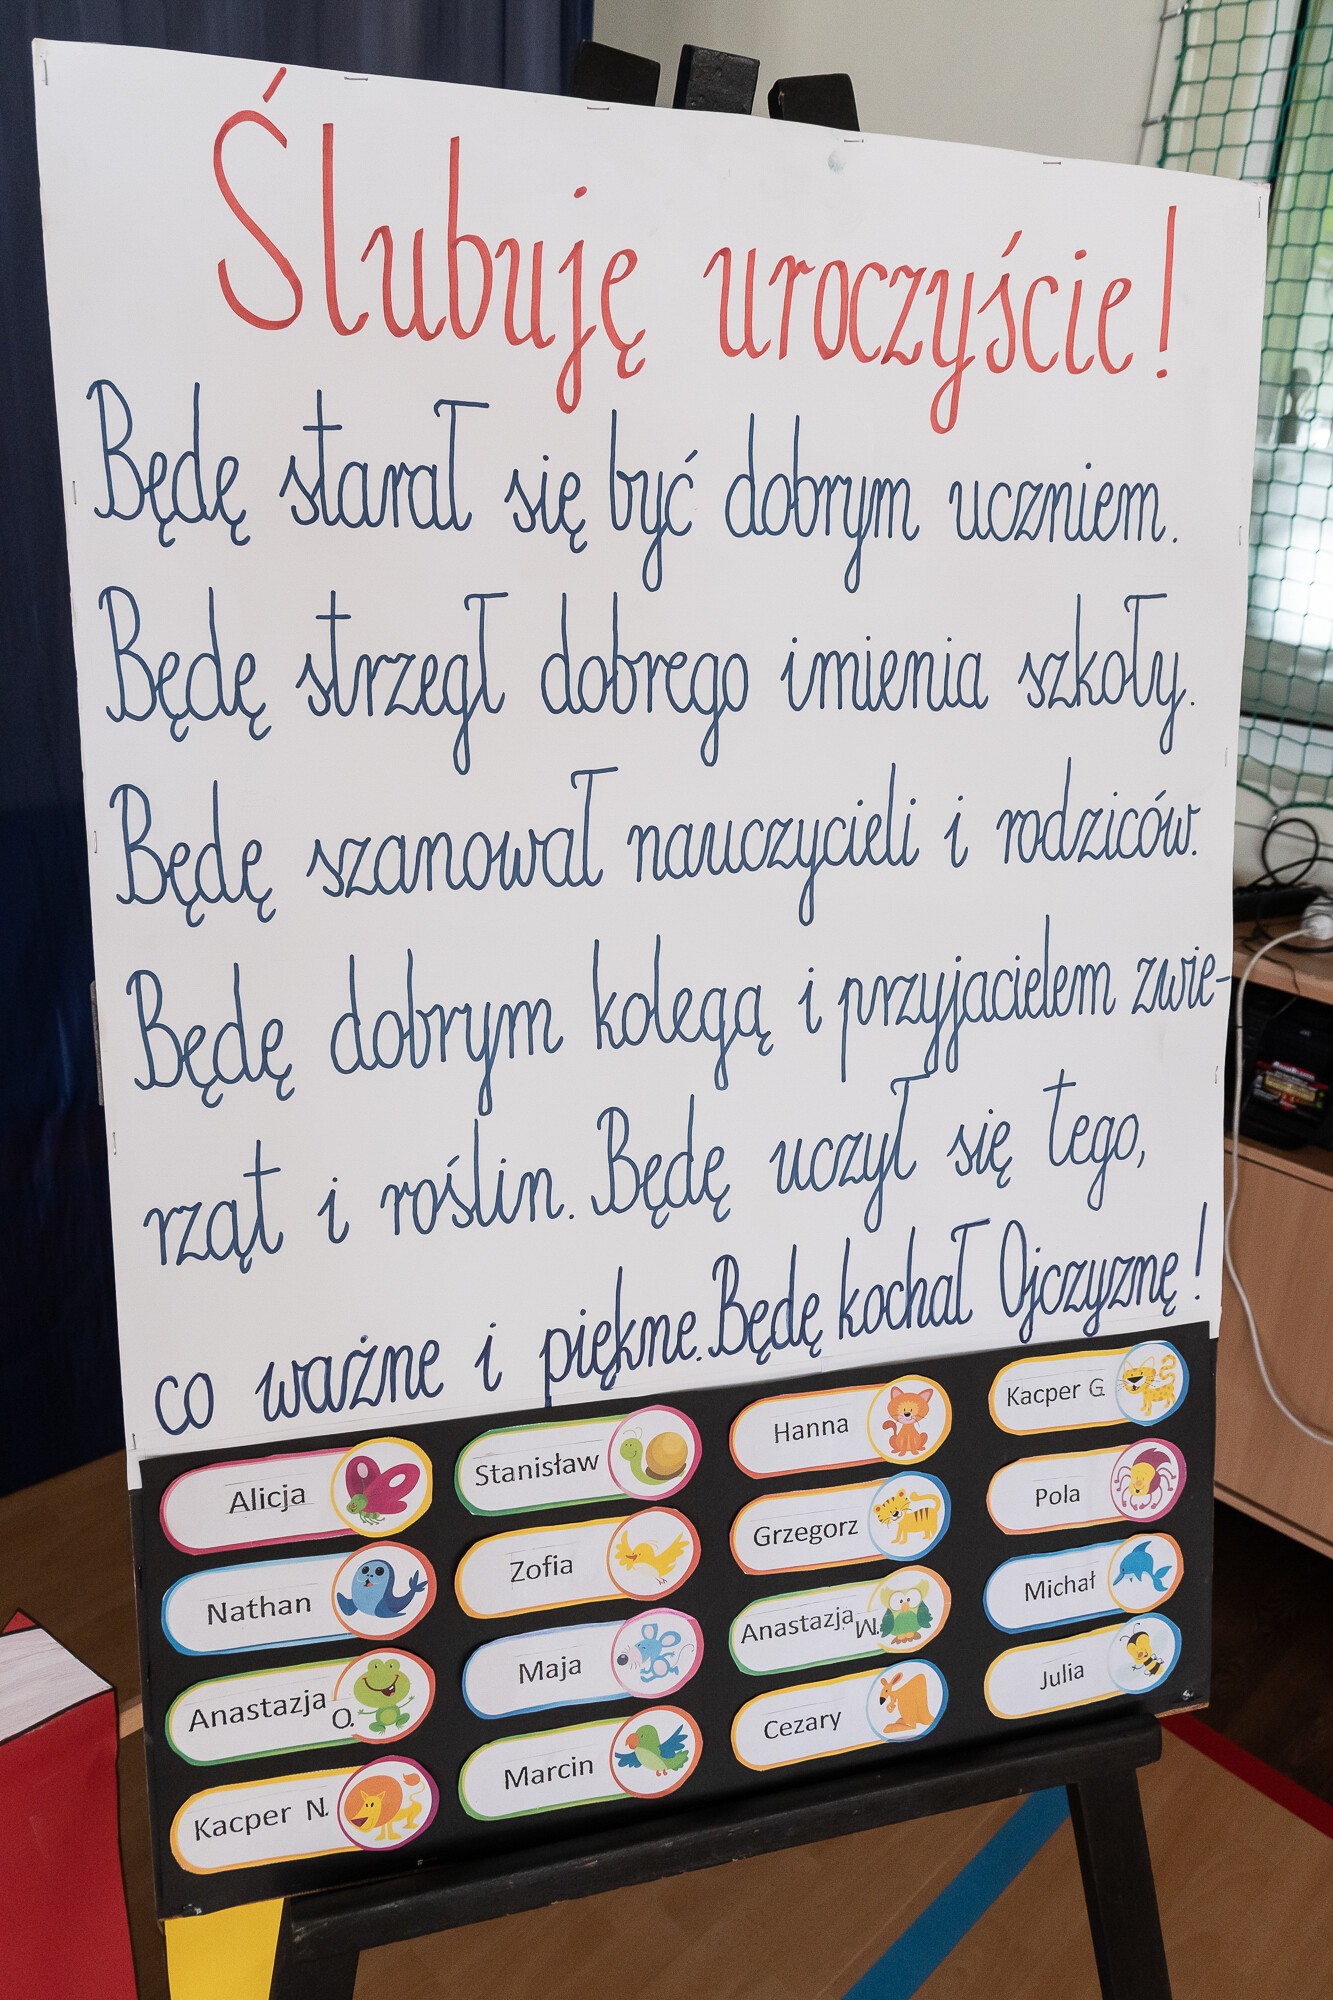 Ślubuję uroczyście!
Będę starał się być dobrym uczniem.
Będę strzegł dobrego imienia szkoły.
Będę szanował nauczycieli i rodziców.
Będę dobrym kolegą i przyjacielem zwie-
rząt i roślin. Będę uczył się tego,
co ważne i piękne. Będę kochał Ojczyznę!
Alicja
Stanisław
Hanna
Kacper G.
Nathan
Zofia
Grzegorz
Pola
Anastazja O.
Maja
Anastazja M.
Michał
Kacper N.
Marcin
Cezary
Julia